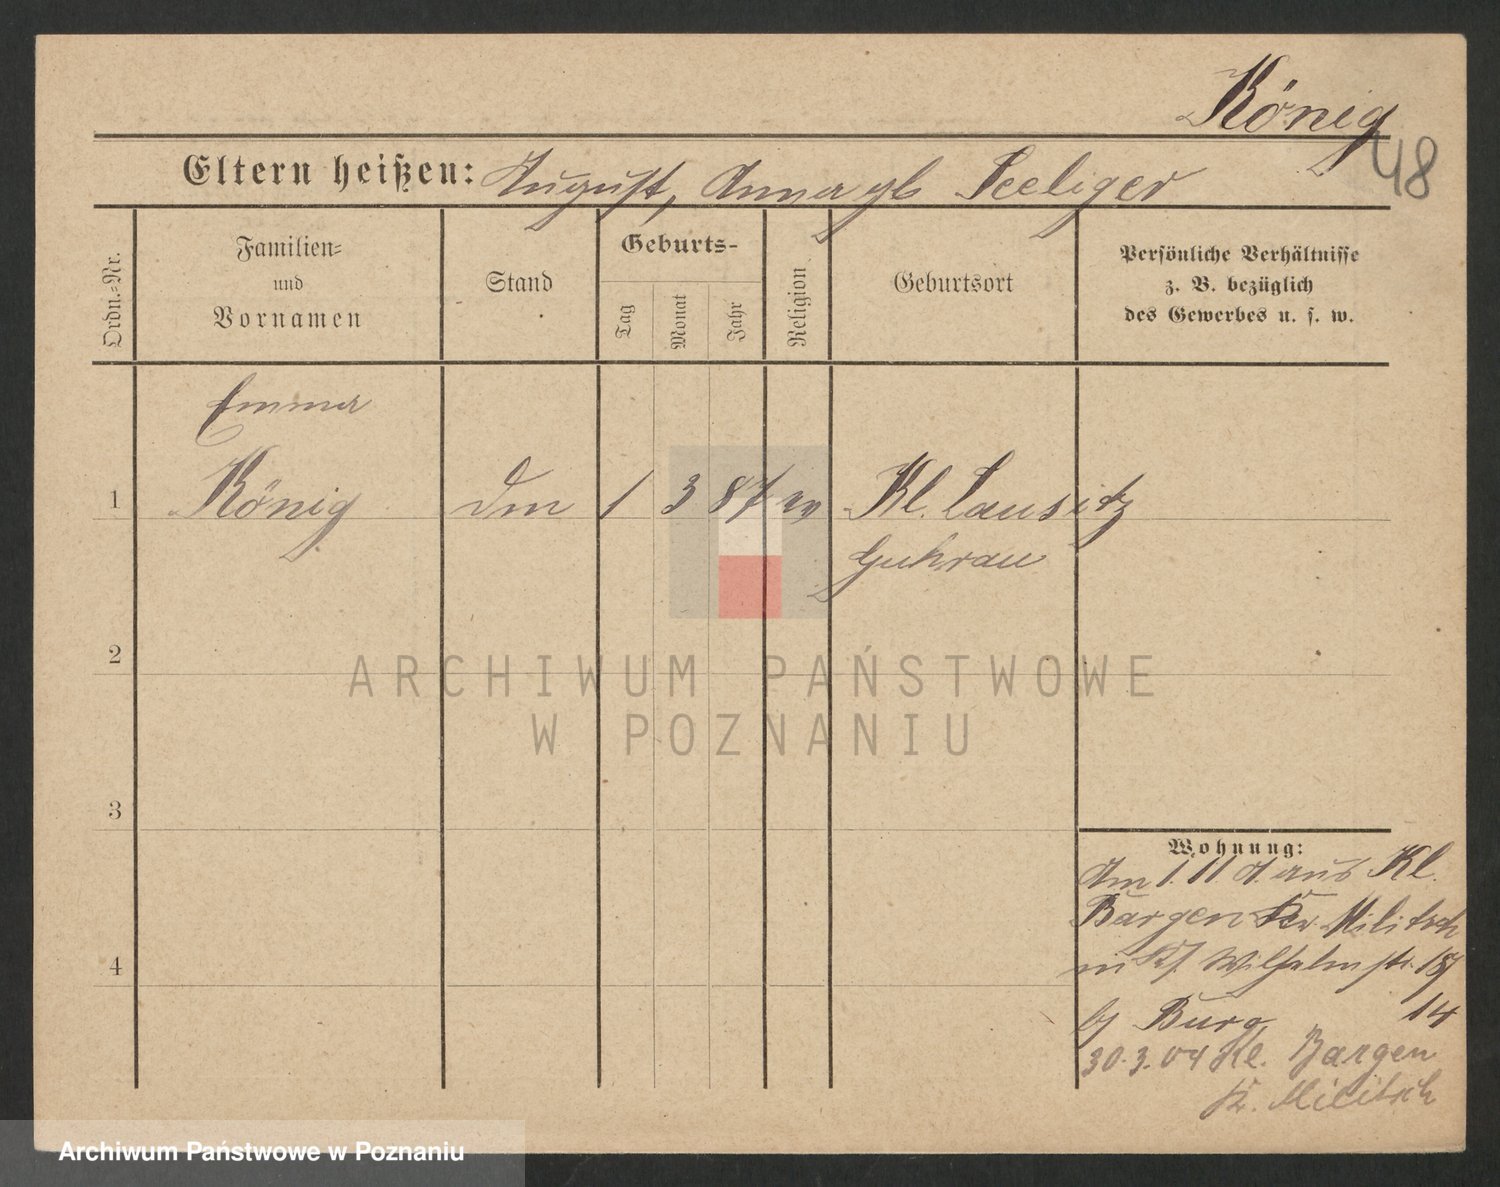 König
48
Eltern heißen: August, Anna gb Seeliger
Ordn.=Nr.
Familien=
und
Vornamen
Stand
Geburts-
Tag
Monat
Jahr
Religion
Geburtsort
Persönliche Verhältnisse
z. B. bezüglich
des Gewerbes u. s. w.
Emma
1 König Dm 1 3 87 ev Kl. Lausitz
Guhrau
2
ARCHIWUM PAŃSTWOWE
W POZNANIU
3
Wohnung:
Am 1. 11. aus Kl.
Bargen Kr. Militsch
in Wilhelmstr. 18/
14
by Burg
30.3.04 Kl. Bargen
Kr. Militsch
4
Archiwum Państwowe w Poznaniu